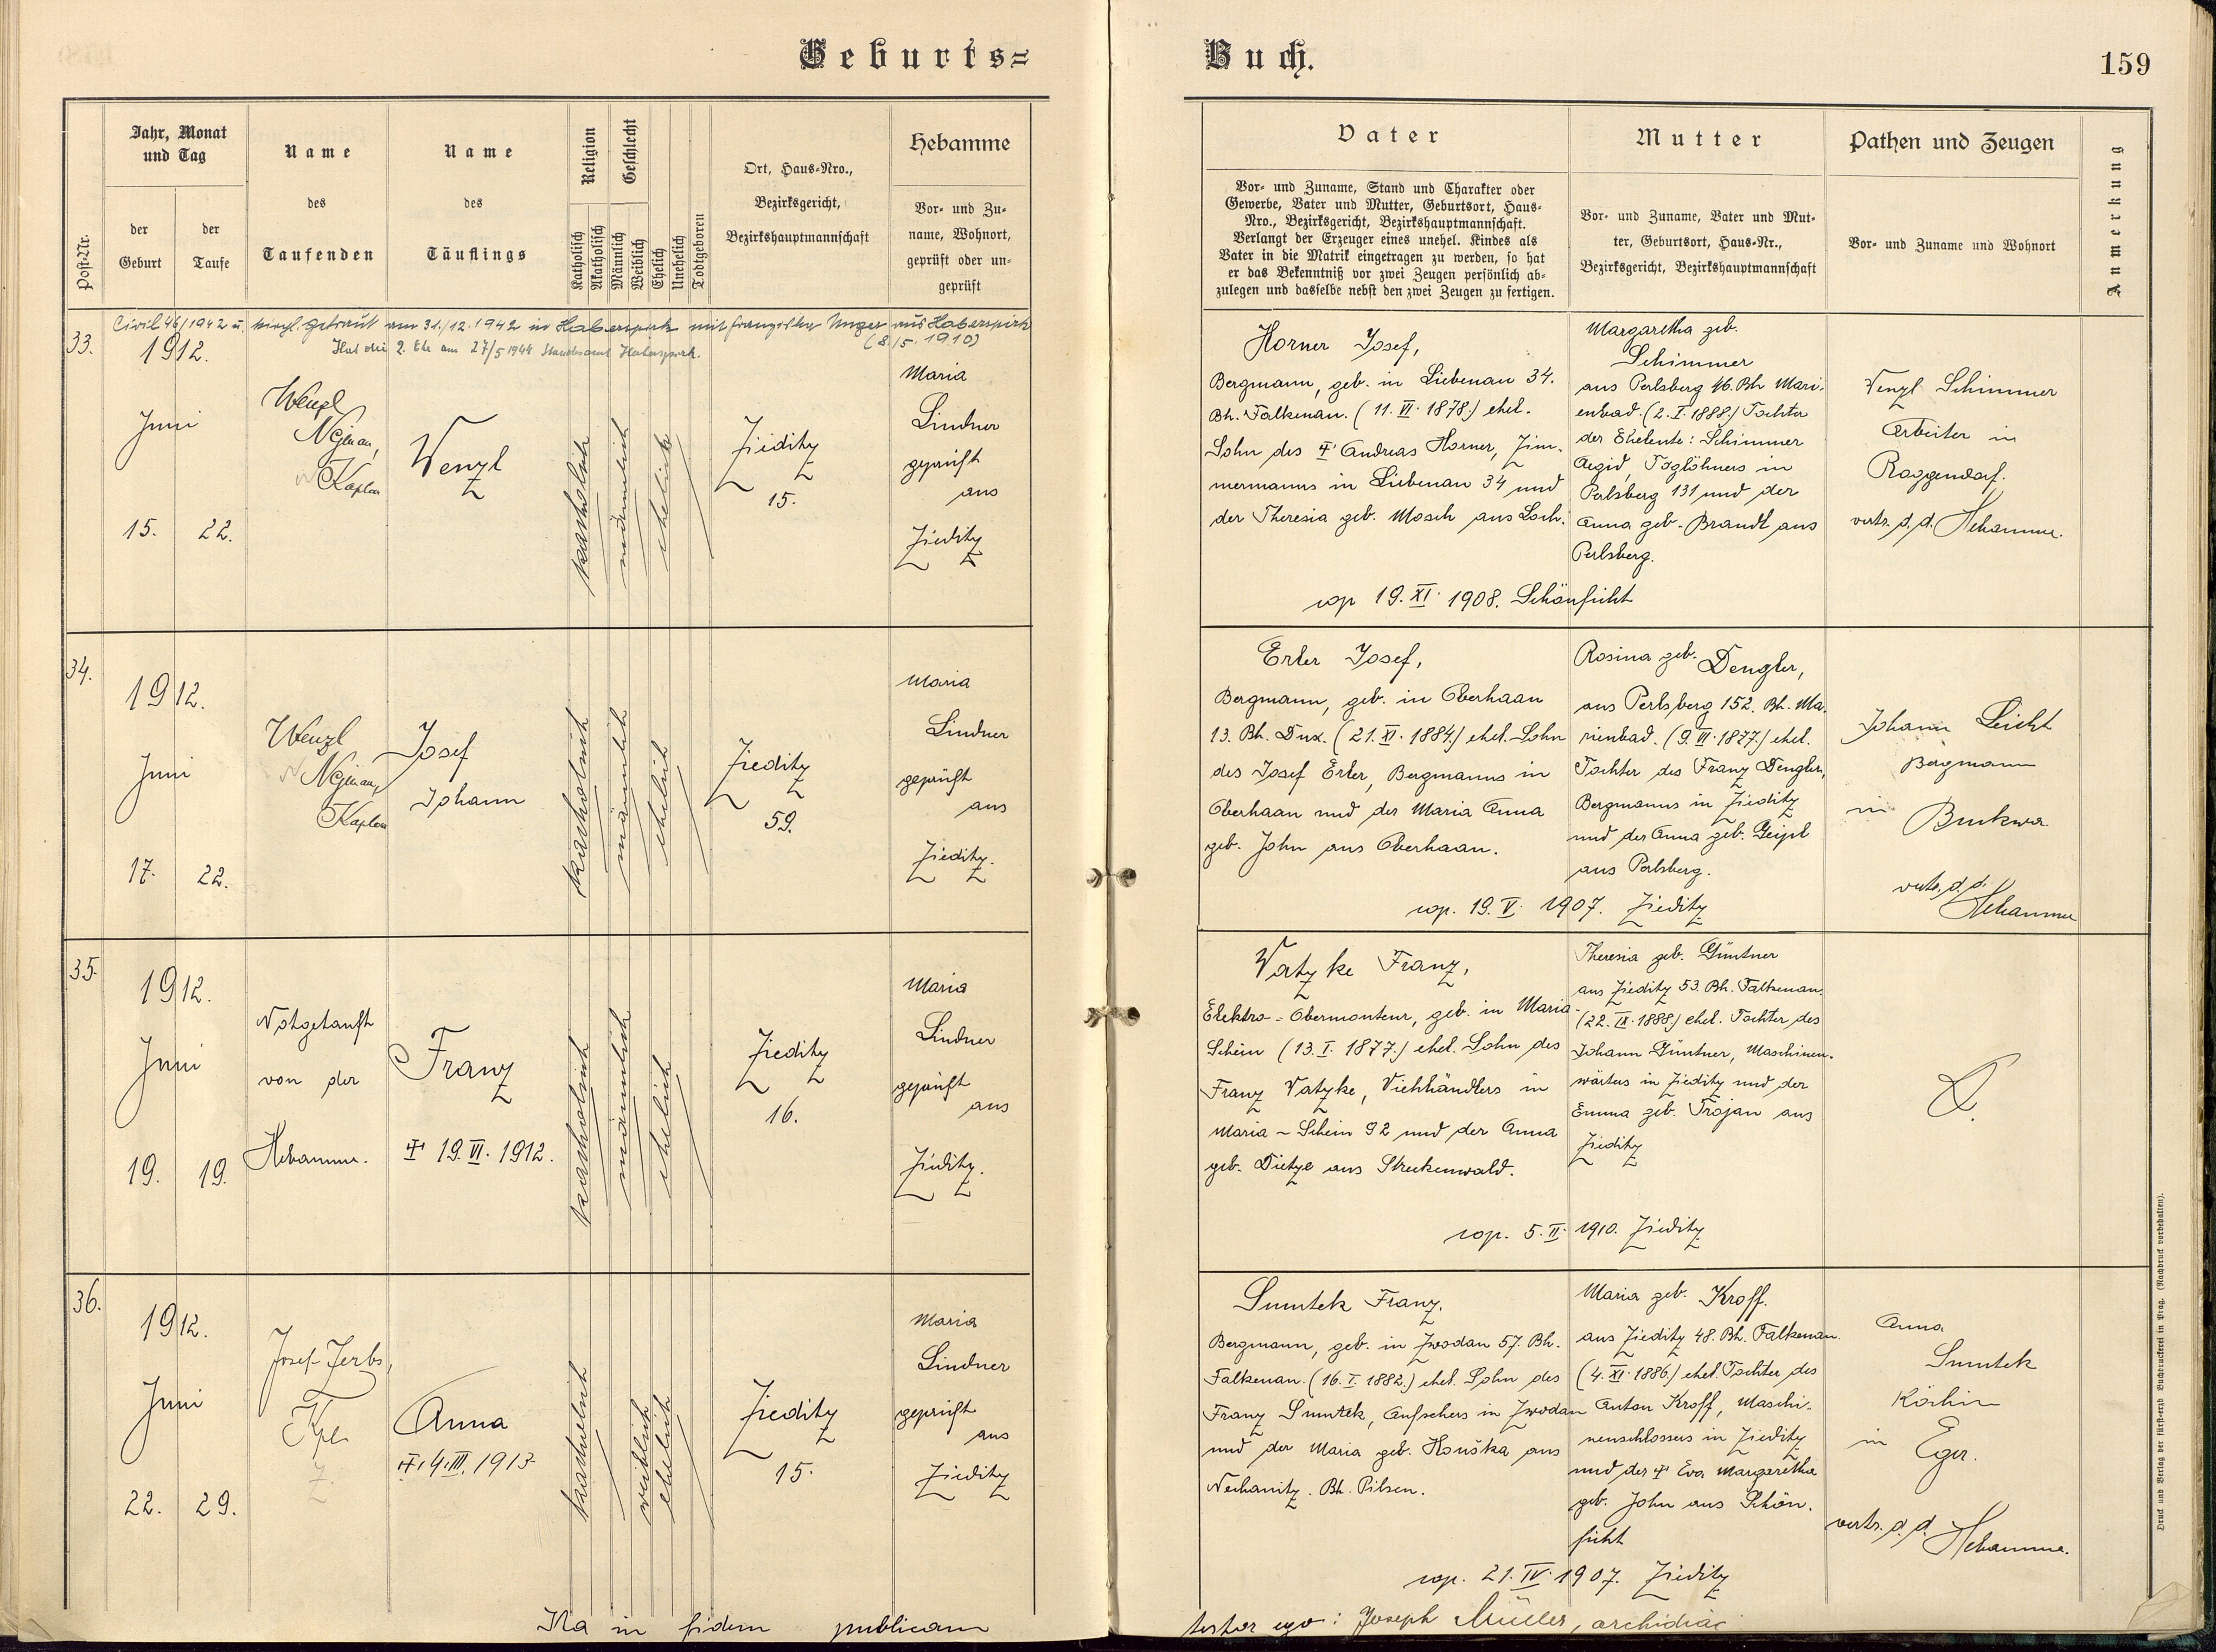 Geburts=
Buch.
159
Post-Nr.
Jahr, Monat
und Tag
der
Geburt
der
Taufe
Name
des
Taufenden
Name
des
Täuflings
Religion
Katholisch
Akatholisch
Geschlecht
Männlich
Weiblich
Ehelich
Unehelich
Todtgeboren
Ort, Haus-Nro.,
Bezirksgericht,
Bezirkshauptmannschaft
Hebamme
Vor- und Zu-
name, Wohnort,
geprüft oder un-
geprüft
Vater
Vor- und Zuname, Stand und Charakter oder
Gewerbe, Vater und Mutter, Geburtsort, Haus-
Nro., Bezirksgericht, Bezirkshauptmannschaft.
Verlangt der Erzeuger eines unehel. Kindes als
Vater in die Matrik eingetragen zu werden, so hat
er das Bekenntniß vor zwei Zeugen persönlich ab-
zulegen und dasselbe nebst den zwei Zeugen zu fertigen.
Mutter
Vor- und Zuname, Vater und Mut-
ter, Geburtsort, Haus-Nr.,
Bezirksgericht, Bezirkshauptmannschaft
Pathen und Zeugen
Vor- und Zuname und Wohnort
Anmerkung
Civil 46/1942 u. kirchl. getraut am 31./12.1942 in Haberspirk mit Franziska Unger aus Haberspirk
(8./5. 1910)
Hat die 2. Ehe am 27/5 1944 Standesamt Haberspirk.
33.
1912.
Juni
15. 22.
Wenzl
Nejman,
Kaplan
Wenzl
katholisch
männlich
ehelich
Zieditz
15.
Maria
Lindner
geprüft
aus
Zieditz
Horner Josef,
Bergmann, geb. in Liebenau 34.
Bh. Falkenau. (11. VI. 1878.) ehel.
Sohn des ‡ Andreas Horner, Zim-
mermanns in Liebenau 34 und
der Theresia geb. Mosch aus Loch.
Margaretha geb.
Schimmer
aus Perlsberg 46. Bh. Mari-
enbad. (2. I. 1888.) Tochter
der Eheleute: Schimmer
Aegid, Taglöhners in
Perlsberg 131 und der
Anna geb. Brandl aus
Perlsberg.
cop 19. XI. 1908. Schönficht
Wenzl Schimmer
Arbeiter in
Roggendorf.
vertr. d. d. Hebamme.
34.
1912.
Juni
17. 22.
Wenzl
Nejman,
Kaplan
Josef
Johann
katholisch
männlich
ehelich
Zieditz
59.
Maria
Lindner
geprüft
aus
Zieditz.
Erler Josef,
Bergmann, geb. in Oberhaan
13. Bh. Dux. (21. XI. 1884.) ehel. Sohn
des Josef Erler, Bergmanns in
Oberhaan und der Maria Anna
geb. John aus Oberhaan.
Rosina geb. Dengler,
aus Perlsberg 152. Bh. Ma-
rienbad. (9. VII. 1877.) ehel.
Tochter des Franz Dengler,
Bergmanns in Zieditz
und der Anna geb. Geipl
aus Perlsberg.
cop. 19. V. 1907. Zieditz
Johann Leicht
Bergmann
in Bukwa
vertr. d. d.
Hebamme
35.
1912.
Juni
19. 19.
Notgetauft
von der
Hebamme.
Franz
‡ 19. VI. 1912.
katholisch
männlich
ehelich
Zieditz
16.
Maria
Lindner
geprüft
aus
Zieditz.
Vatzke Franz,
Elektro-Obermonteur, geb. in Maria-
Schein (13. I. 1877.) ehel. Sohn des
Franz Vatzke, Viehhändlers in
Maria-Schein 92 und der Anna
geb. Dietze aus Streckenwald.
Theresia geb. Güntner
aus Zieditz 53. Bh. Falkenau.
(22. IX. 1888.) ehel. Tochter des
Johann Güntner, Maschinen-
wärters in Zieditz und der
Emma geb. Trojan aus
Zieditz
cop. 5. II. 1910. Zieditz
36.
1912.
Juni
22. 29.
Josef Jerbs,
Kpl.
Anna
‡ 4. III. 1913
katholisch
weiblich
ehelich
Zieditz
15.
Maria
Lindner
geprüft
aus
Zieditz
Sumtek Franz,
Bergmann, geb. in Zwodau 57. Bh.
Falkenau. (16. I. 1882.) ehel. Sohn des
Franz Sumtek, Aufsehers in Zwodau
und der Maria geb. Houška aus
Nechanitz. Bh. Pilsen.
Maria geb. Kroff.
aus Zieditz 48. Bh. Falkenau.
(4. XI. 1886.) ehel. Tochter des
Anton Kroff, Maschi-
nenschlossers in Zieditz
und der ‡ Eva Margaretha
geb. John aus Schön-
ficht
cop. 21. IV. 1907. Zieditz
Anna
Sumtek
Köchin
in Eger.
vertr. d. d.
Hebamme.
Ita in fidem publicam
testor ego: Joseph Müller, archidiac
Druck und Verlag der fürst-erzb. Buchdruckerei in Prag. (Nachdruck vorbehalten).